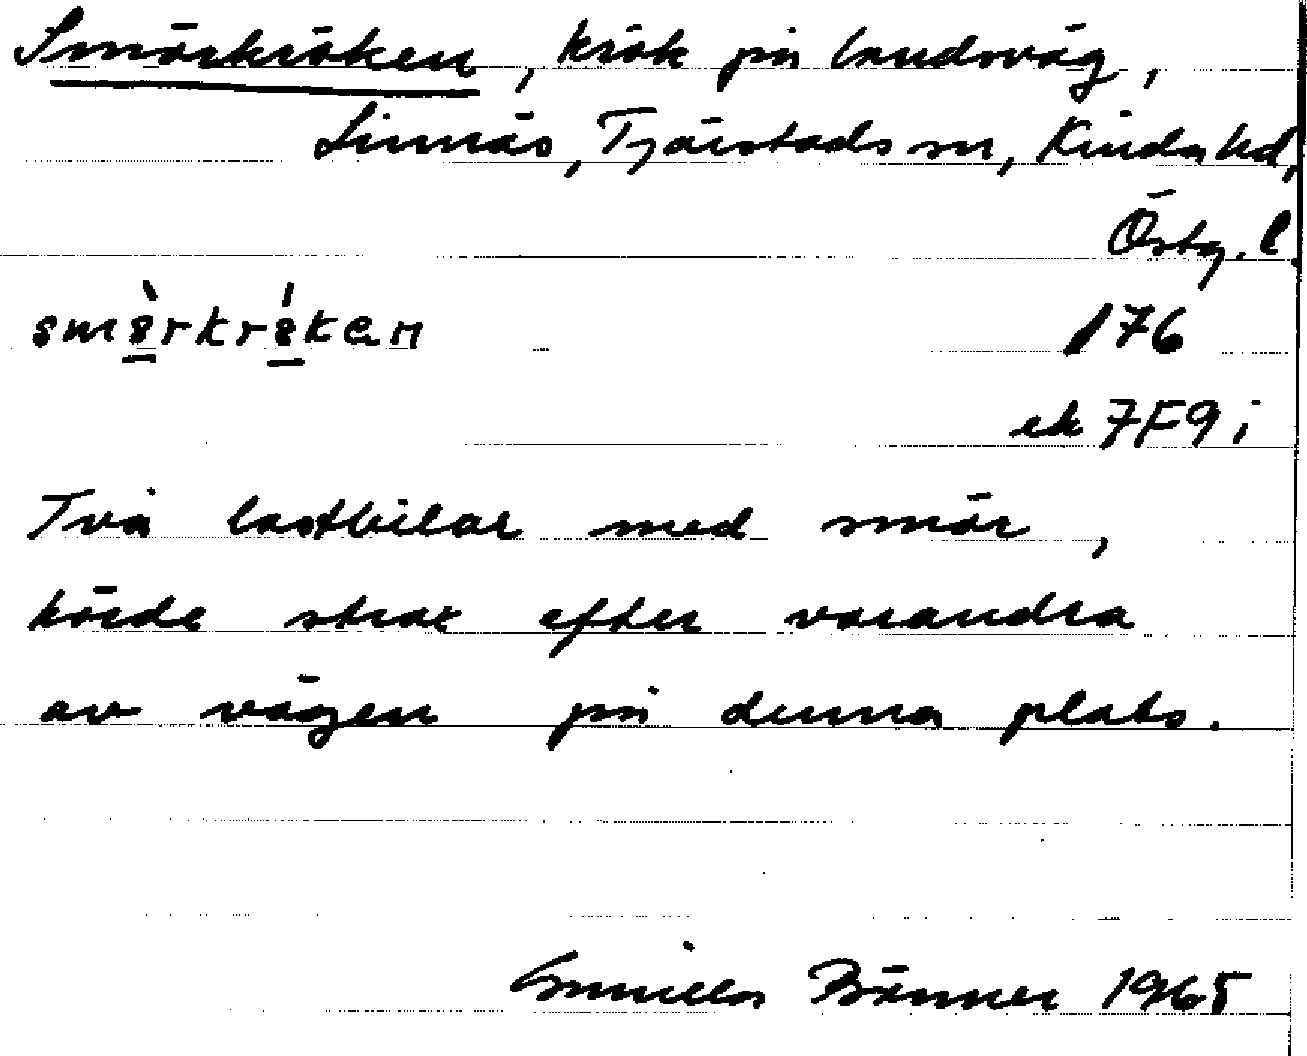 Smörkröken, krök på landsväg,
Linnäs, Tjärstads sn, Kinda hd,
Östg. l.
smörkröken 176
ek 7F9i
Två lastbilar med smör,
körde strax efter varandra
av vägen på denna plats.
Gunilla Bänner 1965